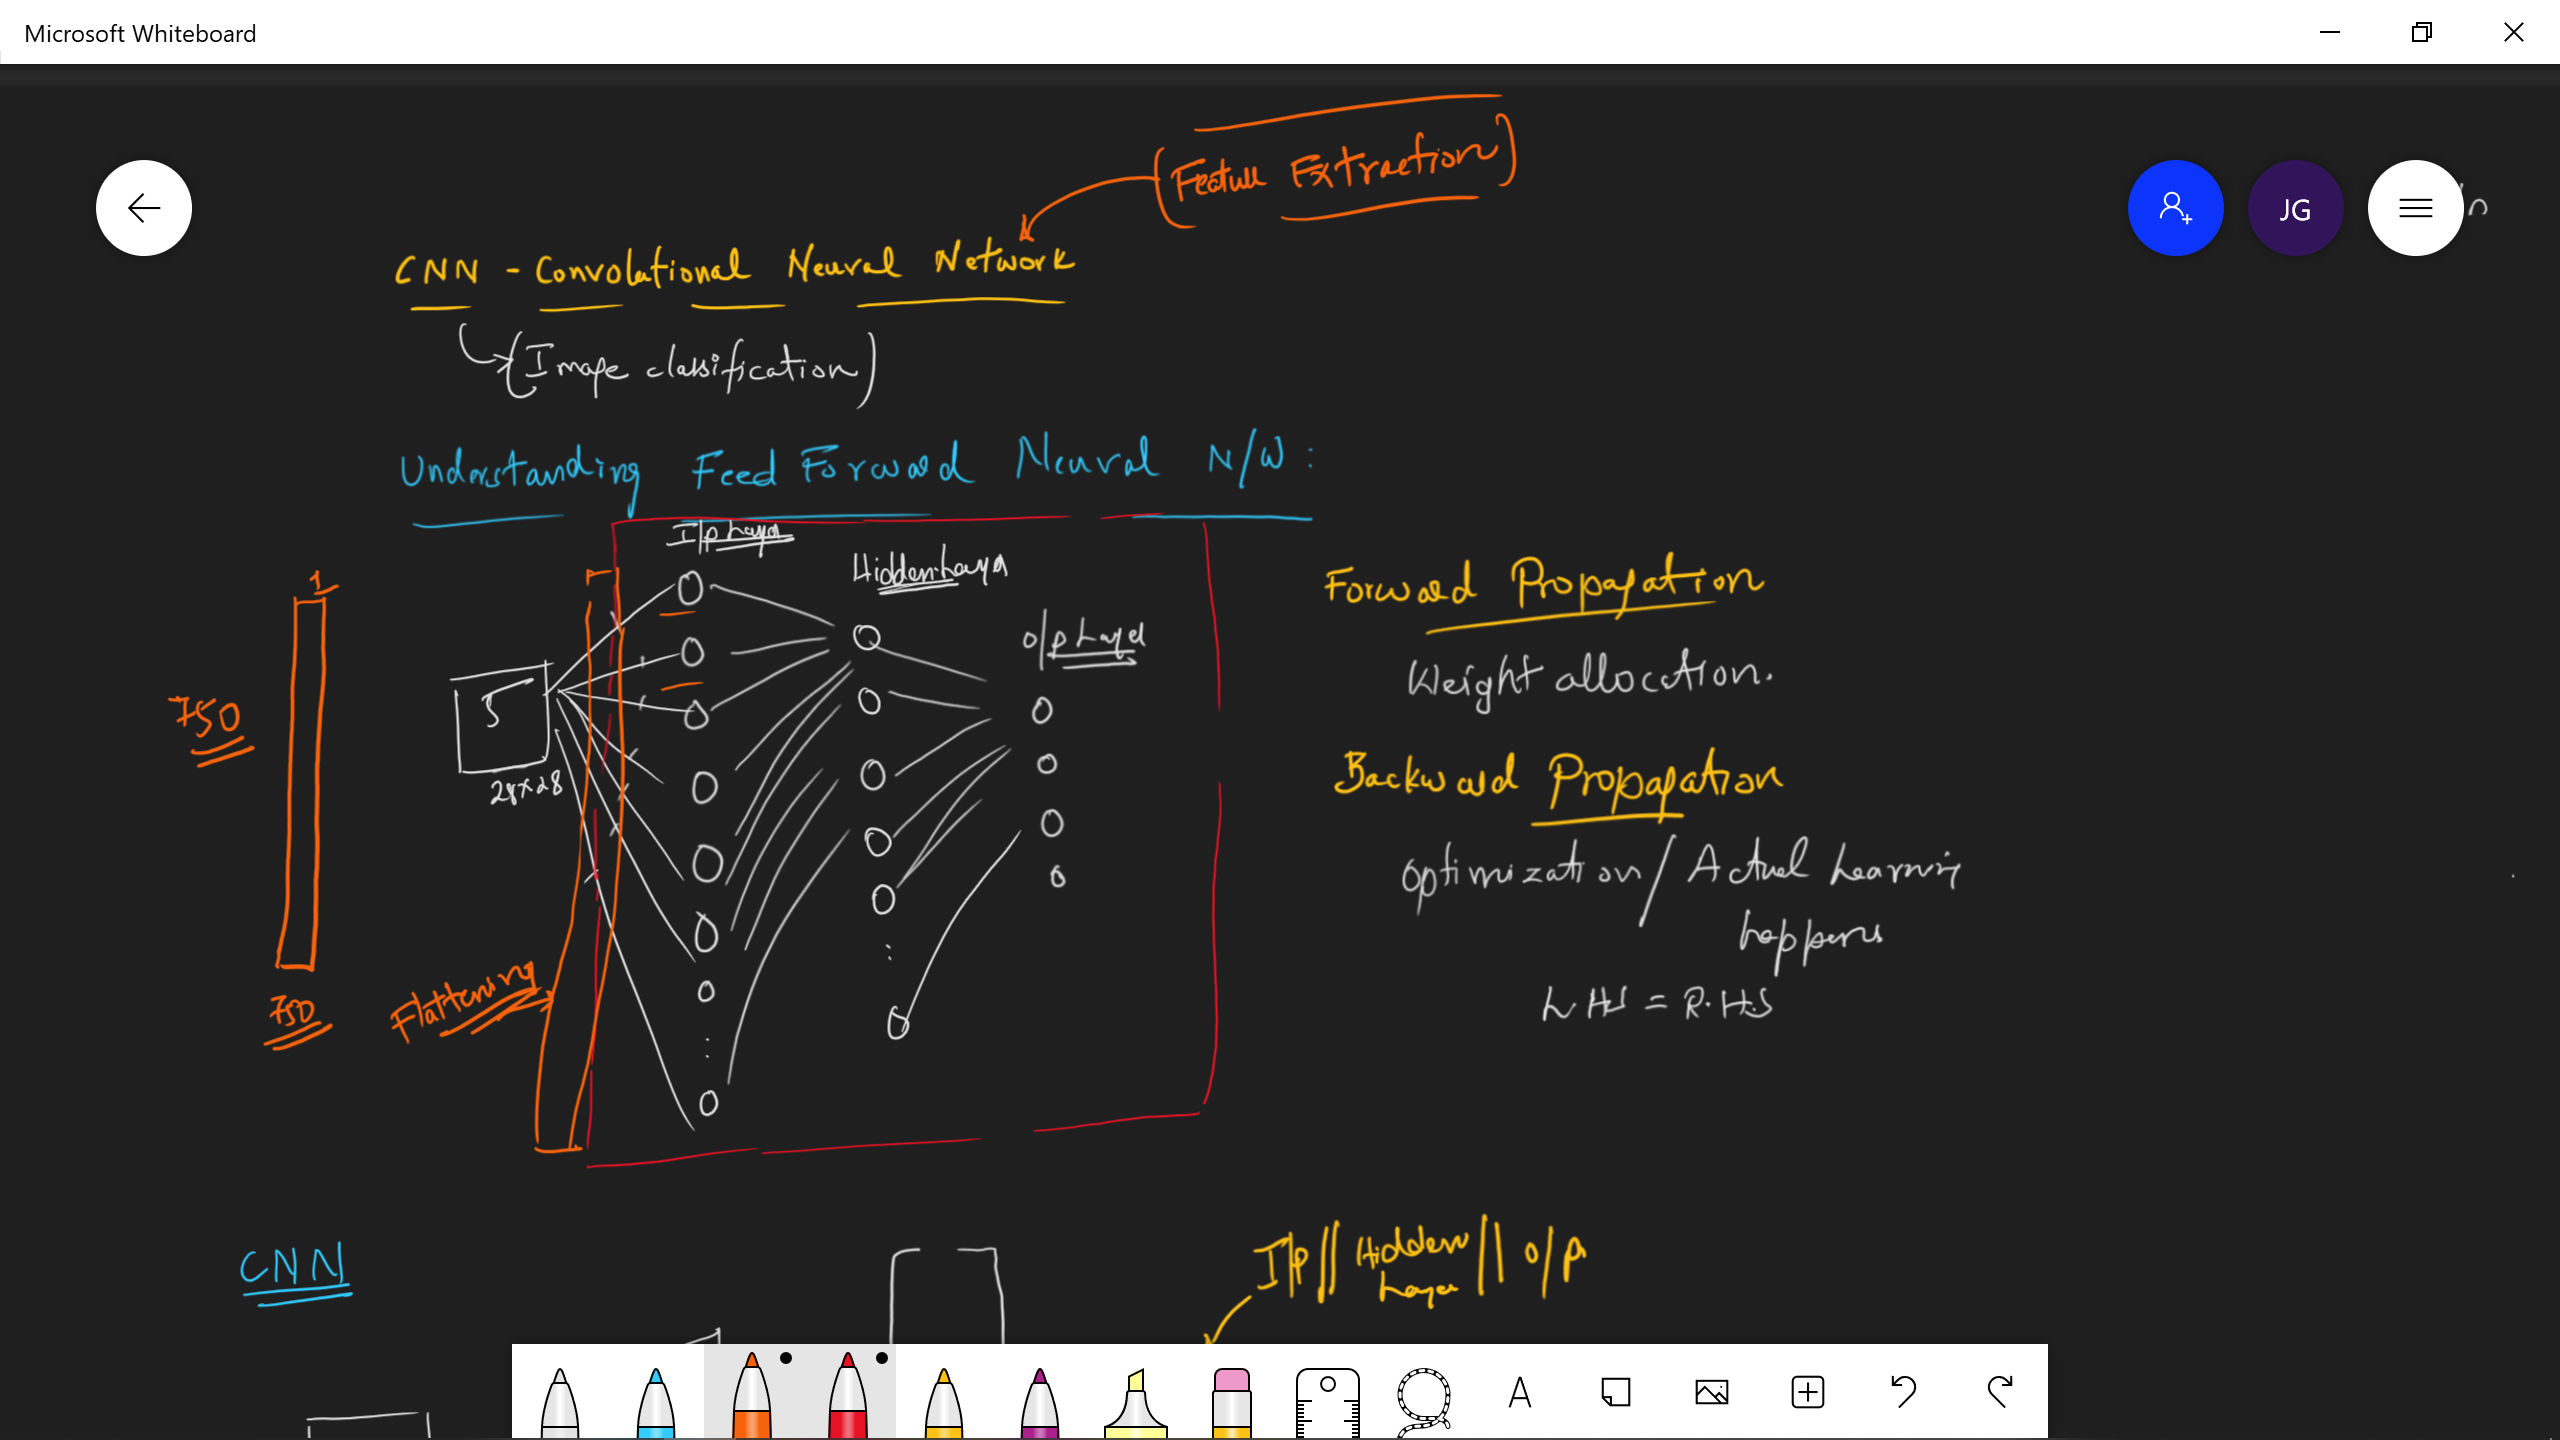 Microsoft Whiteboard
(Feature Extraction)
JG
CNN - Convolational Neural Network
(Image classification)
Understanding Feed Forward Neural N/W:
I/p Layer
Hidden Layer
O/p Layer
1
750
750
5
28x28
Flattening
Forward Propagation
Weight allocation.
Backward Propagation
Optimization/ Actual Learning
happens
L.H.S = R.H.S
CNN
I/p || Hidden || O/p
Layer
A